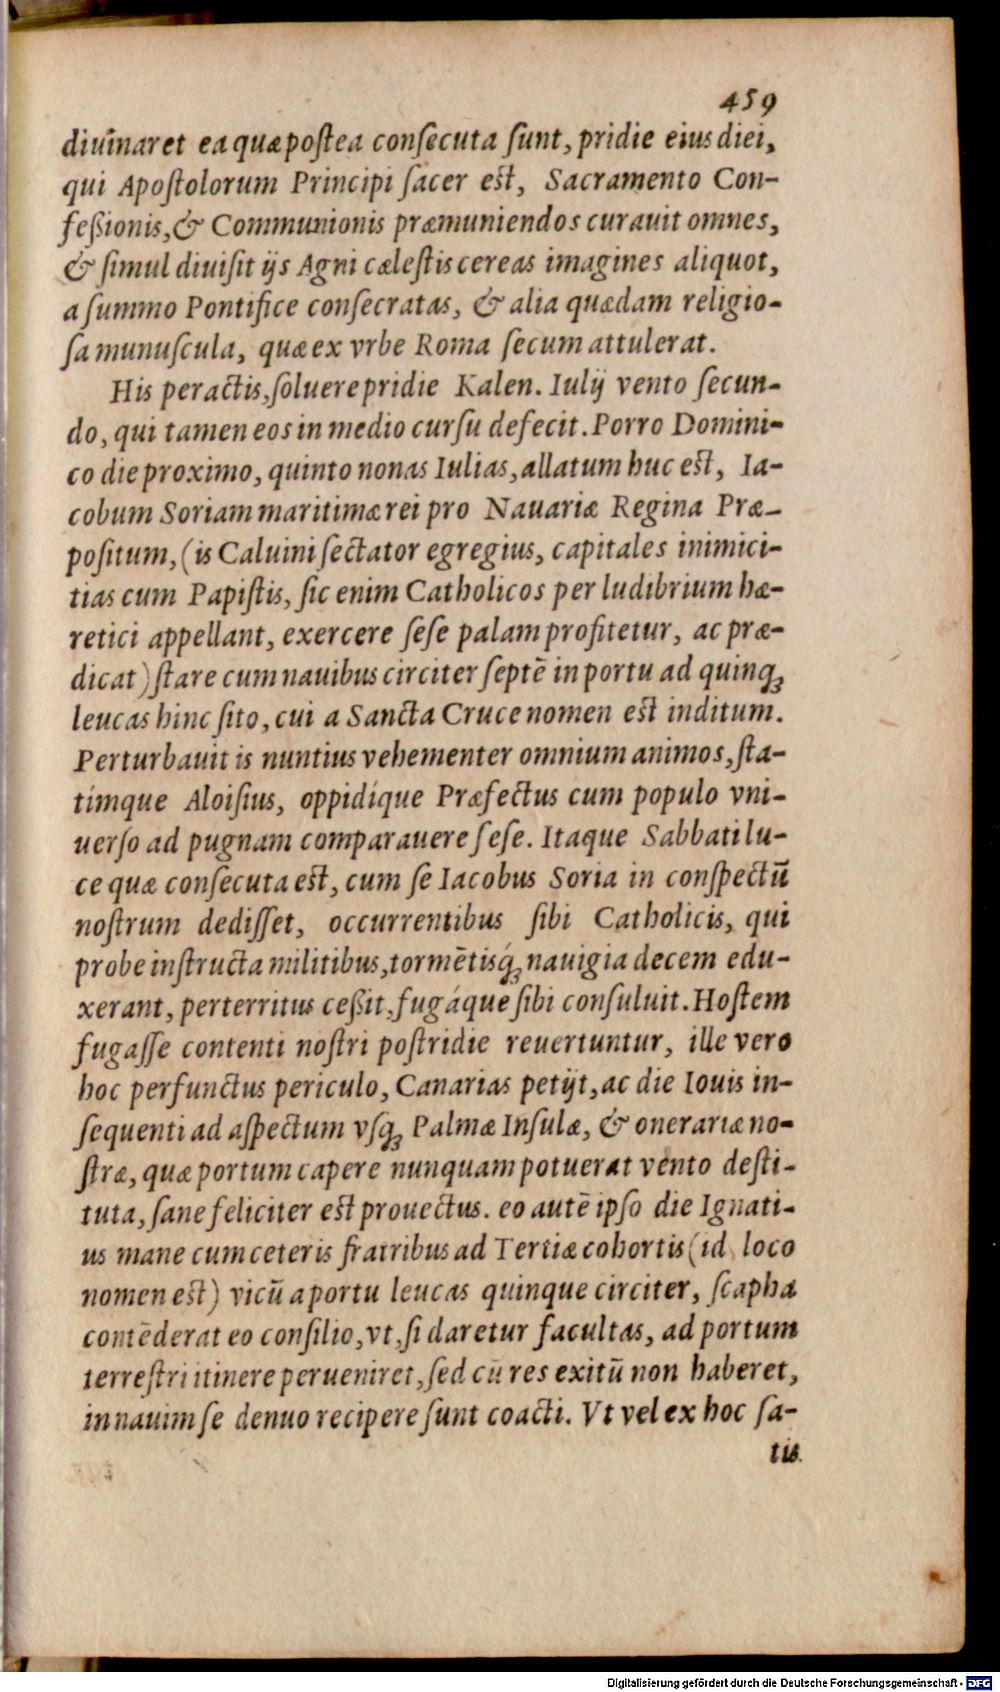 459
diuinaret ea quæ postea consecuta sunt, pridie eius diei,
qui Apostolorum Principi sacer est, Sacramento Con-
feßionis, & Communionis præmuniendos curauit omnes,
& simul diuisit ijs Agni cælestis cereas imagines aliquot,
a summo Pontifice consecratas, & alia quædam religio-
sa munuscula, quæ ex vrbe Roma secum attulerat.
His peractis, soluere pridie Kalen. Iulij vento secun-
do, qui tamen eos in medio cursu defecit. Porro Domini-
co die proximo, quinto nonas Iulias, allatum huc est, Ia-
cobum Soriam maritimæ rei pro Nauariæ Regina Præ-
positum, (is Caluini sectator egregius, capitales inimici-
tias cum Papistis, sic enim Catholicos per ludibrium hæ-
retici appellant, exercere sese palam profitetur, ac præ-
dicat) stare cum nauibus circiter septē in portu ad quinqꝫ
leucas hinc sito, cui a Sancta Cruce nomen est inditum.
Perturbauit is nuntius vehementer omnium animos, sta-
tímque Aloisius, oppidíque Præfectus cum populo vni-
uerso ad pugnam comparauere sese. Itaque Sabbati lu-
ce quæ consecuta est, cum se Iacobus Soria in conspectū
nostrum dedisset, occurrentibus sibi Catholicis, qui
probe instructa militibus, tormētisq́ꝫ nauigia decem edu-
xerant, perterritus ceßit, fugáque sibi consuluit. Hostem
fugasse contenti nostri postridie reuertuntur, ille vero
hoc perfunctus periculo, Canarias petijt, ac die Iouis in-
sequenti ad aspectum vsqꝫ Palmæ Insulæ, & onerariæ no-
stræ, quæ portum capere nunquam potuerat vento desti-
tuta, sane feliciter est prouectus. eo autē ipso die Ignati-
us mane cum ceteris fratribus ad Tertiæ cohortis (id loco
nomen est) vicū a portu leucas quinque circiter, scapha
contēderat eo consilio, vt, si daretur facultas, ad portum
terrestri itinere perueniret, sed cū res exitū non haberet,
in nauim se denuo recipere sunt coacti. Vt vel ex hoc sa-
tis
Digitalisierung gefördert durch die Deutsche Forschungsgemeinschaft - DFG